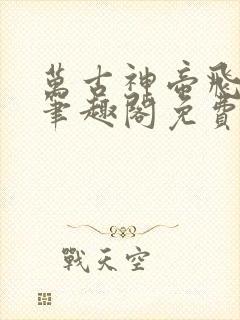 萬古神帝飛
筆趣閣免費
戰天空